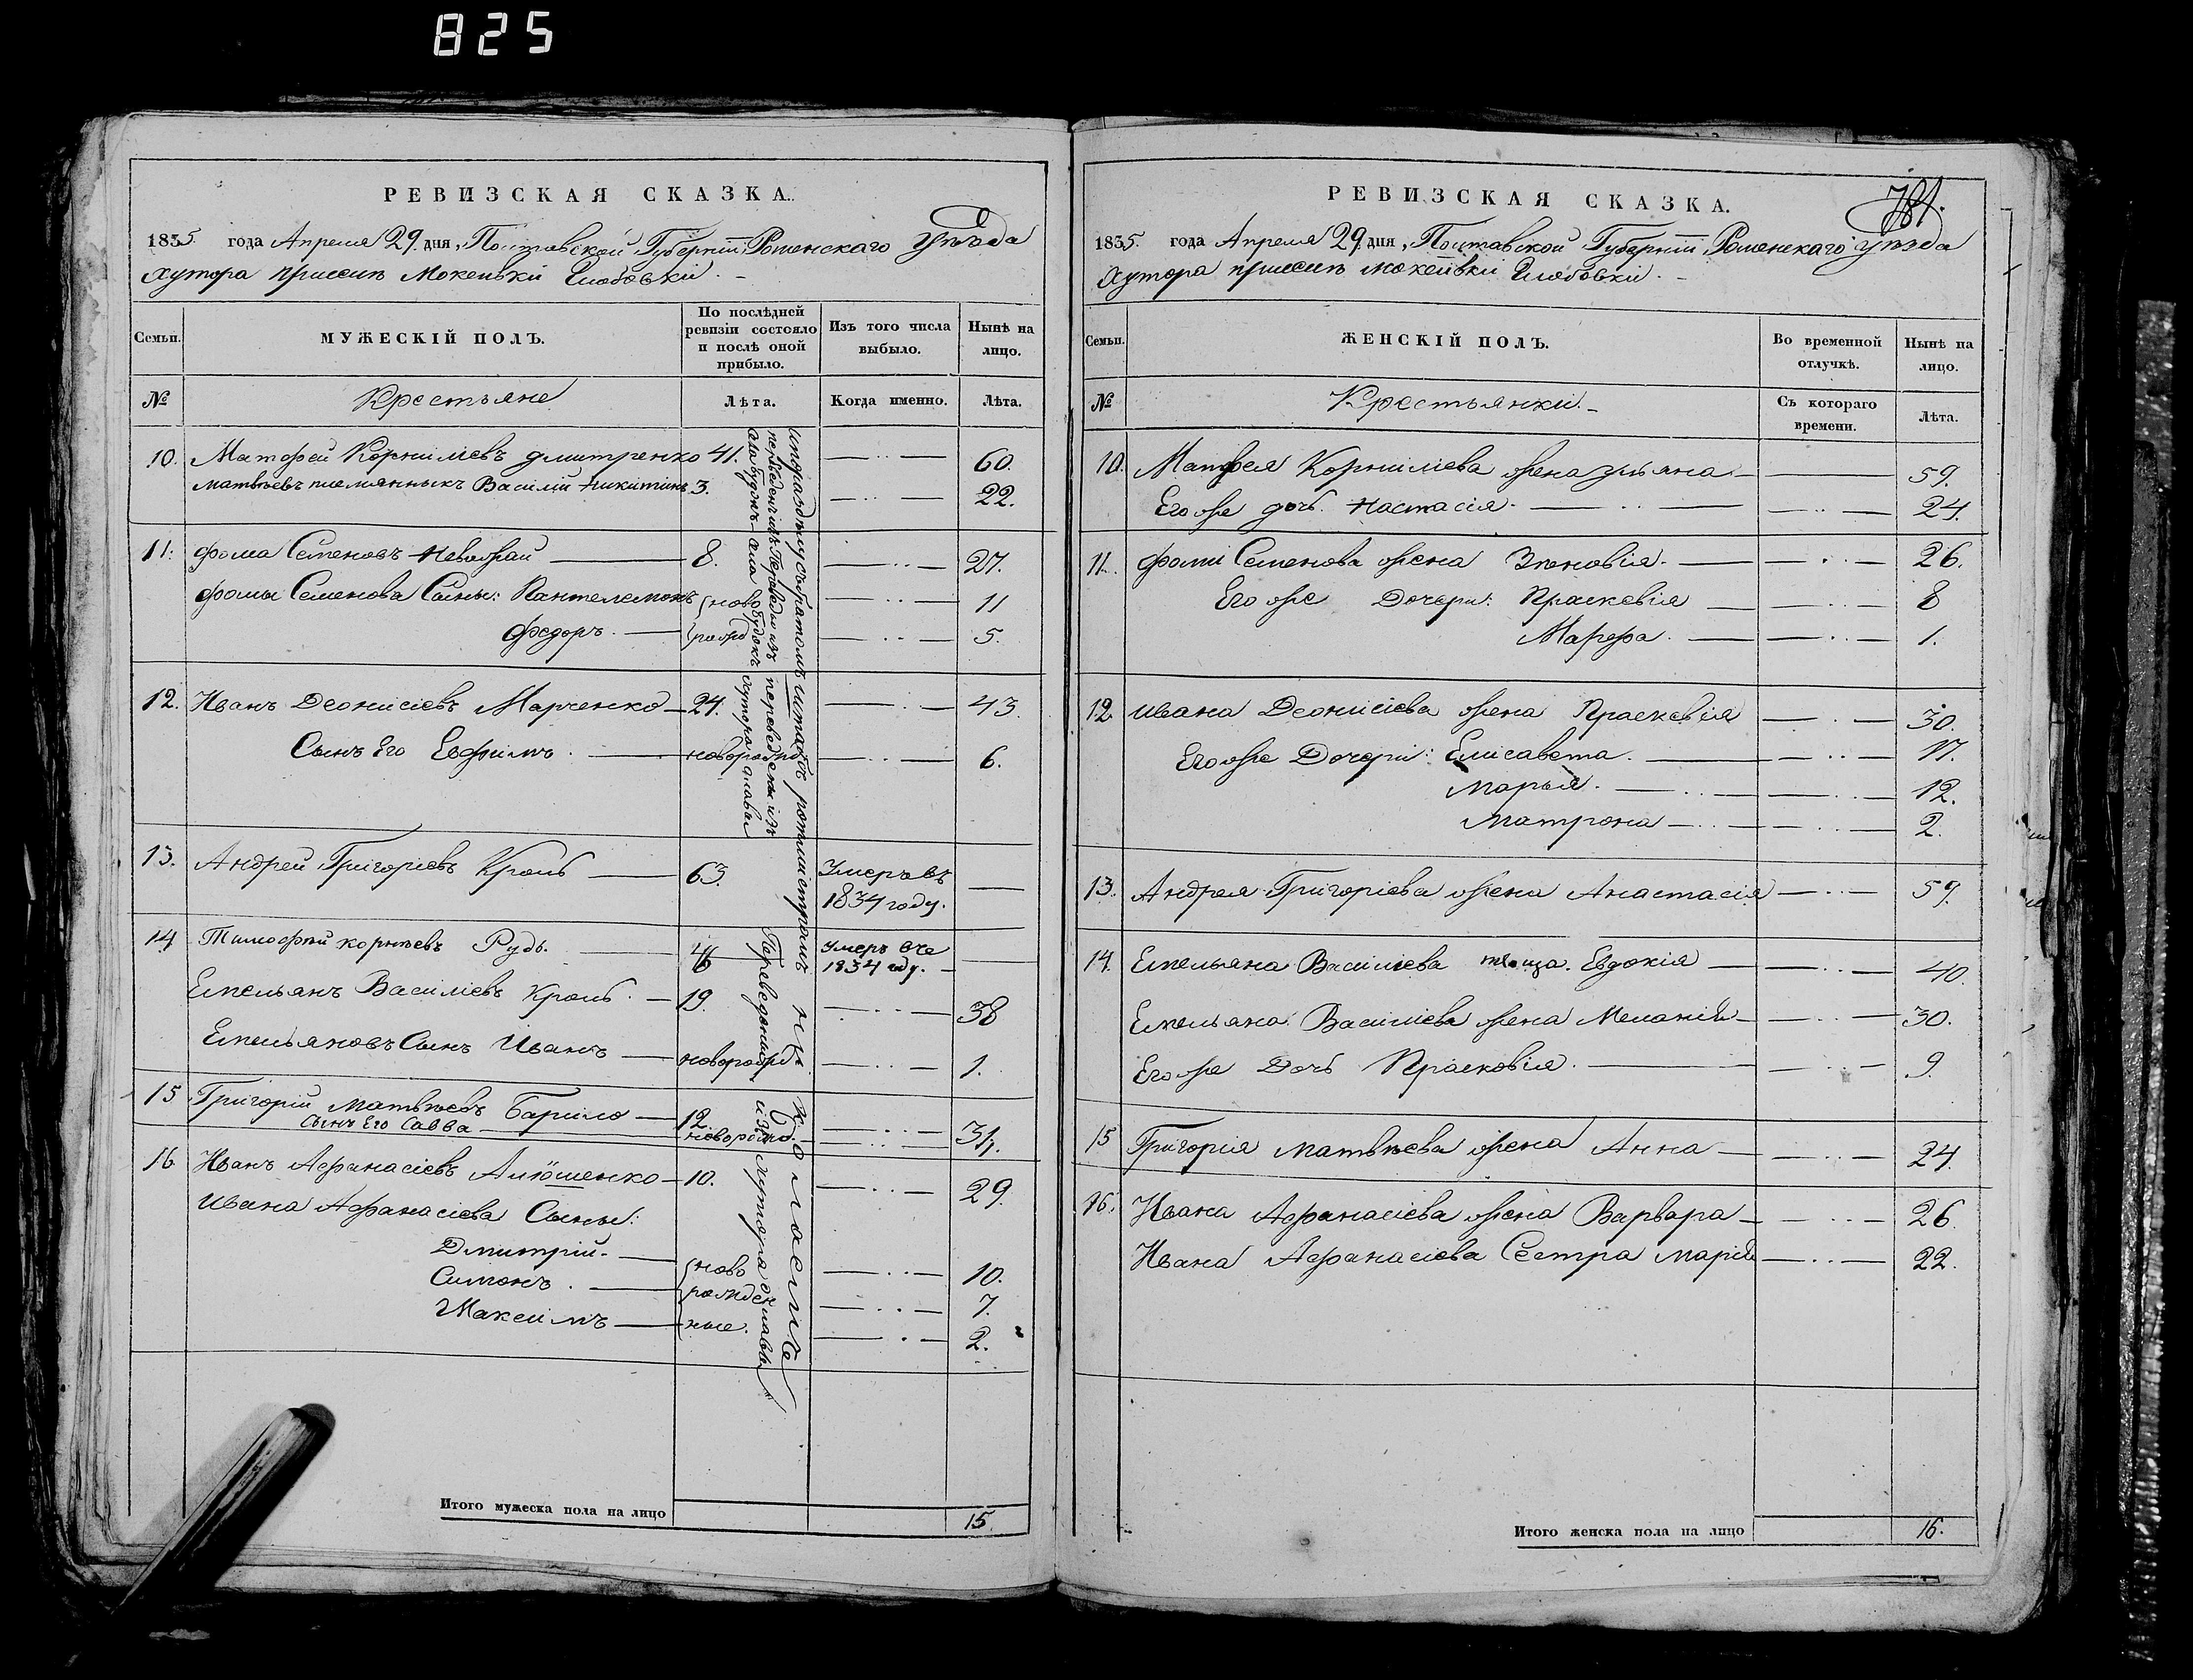 825
РЕВИЗСКАЯ СКАЗКА.
1835 года Апреля 29. дня, Полтавской Губерніи, Роменскаго Уѣзда
хутора присели Мокеивки
Семьи.
МУЖЕСКІЙ ПОЛЪ.
По послѣдней ревизіи состояло и послѣ оной прибыло.
Изъ того числа выбыло.
Нынѣ на лицо.
№
Крестьяне
Лѣта.
Когда именно.
Лѣта.
10. Матфей Корниліевъ Дмитренко 41. 60.
Матвѣевъ племянныкъ Василій Никитинъ 3. 22.
11. Фома Семеновъ Неворай 8. 27.
Фомы Семенова Сыны: Пантелемонъ ново 11
Федоръ. рожд 5.
12. Иванъ Деонисіевъ Марченко 24. 43.
Сынъ Его Евфимъ. новорожд 6.
13. Андрей Григоріевъ Кроль 63. Умеръ въ
1834 году.
14. Тимофѣй Корнѣевъ Рудь. 46 Умеръ въ
1834 году.
Емельянъ Василіевъ Кроль. 19. 38
Емельяновъ Сынъ Иванъ новорожд. 1.
15 Григорій Матвѣевъ Барило 12. 31.
Сынъ Его Савва новорожд.
16 Иванъ Афанасіевъ Алюшенко 10. 29.
Ивана Афанасіева Сыны:
Дмитрій. ново 10.
Симонъ. рожден 7.
Максимъ ные. 2.
Переведены изъ хутора
Итого мужеска пола на лицо 15.
781.
РЕВИЗСКАЯ СКАЗКА.
1835. года Апреля 29 дня, Полтавской Губерніи, Роменскаго уѣзда
Хутора присели Мокеивки
Семьи.
ЖЕНСКІЙ ПОЛЪ.
Во временной отлучкѣ.
Нынѣ на лицо.
№
Крестьянки.
Съ котораго времени.
Лѣта.
10. Матфея Корниліева жена Ульяна 59.
Его же дочь. Настасія. 24.
11. Фоми Семенова жена Зѣновія. 26.
Его же Дочери: Праскевія 8
Марфа. 1.
12 Ивана Деонисіева жена Праскевія 30.
Его же Дочери: Елисавета. 17.
Марья. 12.
Матрона 2.
13. Андрея Григоріева жена Анастасія 59.
14. Емельяна Василіева теща. Евдокія 40.
Емельяна Василіева жена Меланія 30.
Его же Дочь Прасковія. 9.
15 Григорія Матвѣева жена Анна 24.
16. Ивана Афанасіева жена Варвара 26.
Ивана Афанасіева Сестра Марія 22.
Итого женска пола на лицо 16.